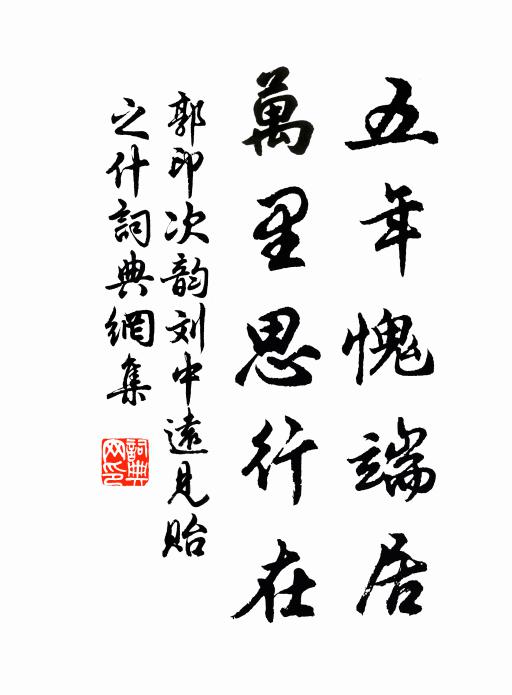 五年愧端居
萬里思行在
郭印次韵刘中遠見貽
之什詞典網集
詞典
网印